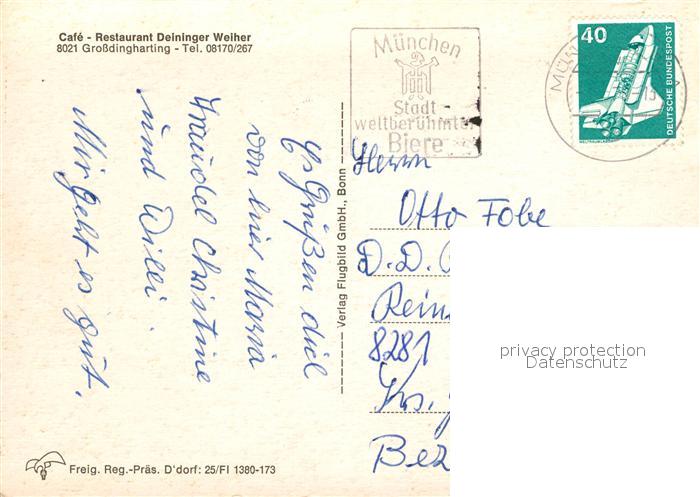 Café - Restaurant Deininger Weiher
8021 Großdingharting - Tel. 08170/267
München
Stadt
weltberühmter
Biere
40
DEUTSCHE BUNDESPOST
Es Grüßen dich
von hier Maria
Traudel Christine
und Willi.
Mir geht es gut.
Verlag Flugbild GmbH., Bonn
Herrn
Otto Fobe
D.D.
Rein
8281
Krs.
Bez
privacy protection
Datenschutz
Freig. Reg.-Präs. D'dorf: 25/FI 1380-173